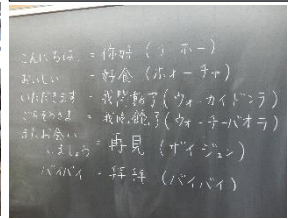 こんにちは = 你好 (ニーホー)
おいしい = 好食 (ホォーチャ)
いただきます = 我開動了 (ウォーカイドンラ)
ごちそうさま = 我吃飽了 (ウォーチーバオラ)
また お会い
しましょう = 再見 (ザイジェン)
バイバイ = 拜拜 (バイバイ)